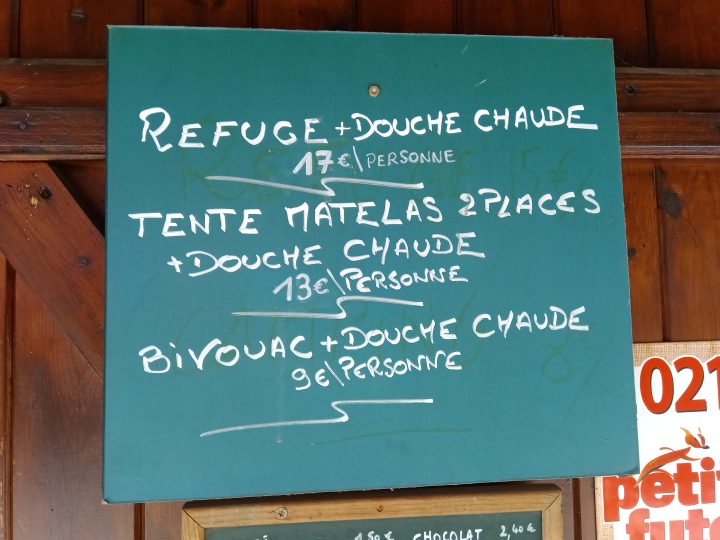 REFUGE + DOUCHE CHAUDE
17€\PERSONNE
TENTE MATELAS 2PLACES
+DOUCHE CHAUDE
13€\PERSONNE
BiVOUAC + DOUCHE CHAUDE
9€\PERSONNE
021
petit
futé
CHOCOLAT 2,40€